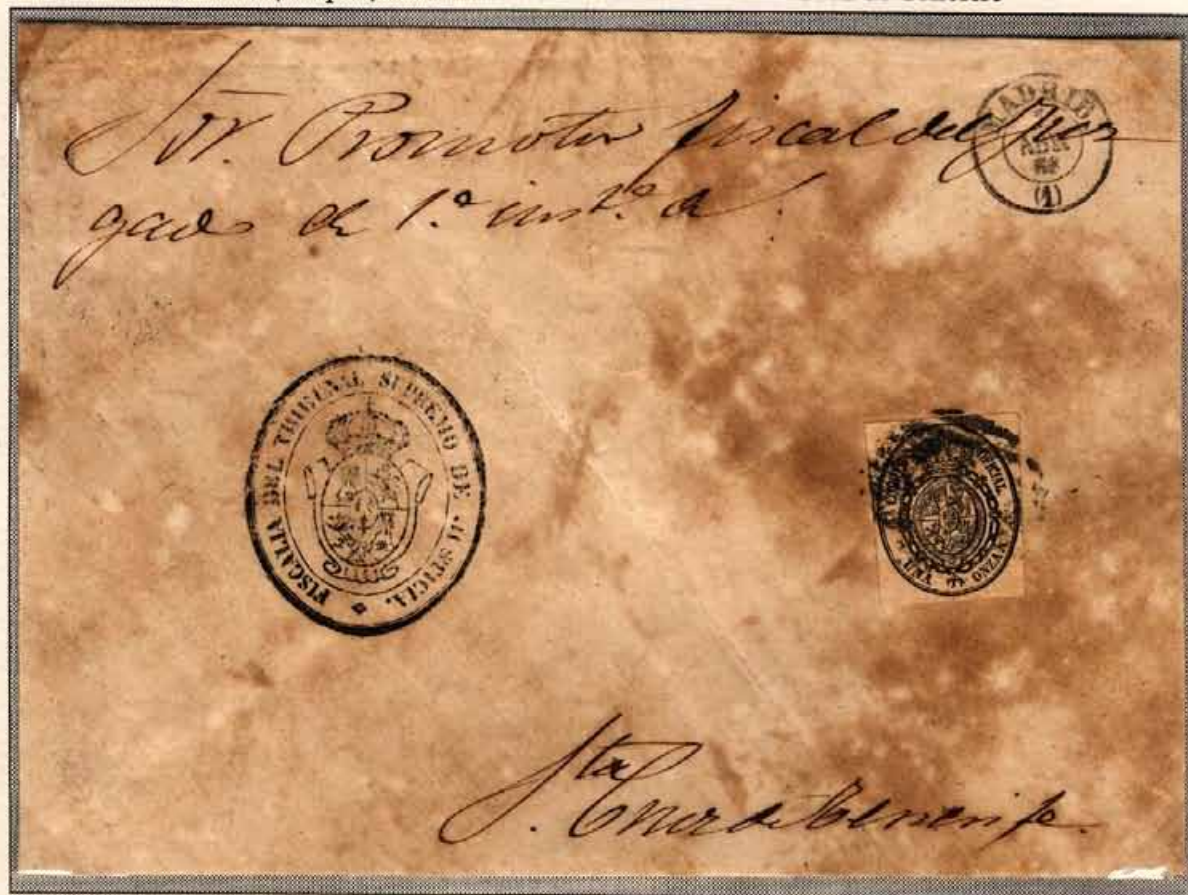 Sor. Promotor fiscal del Juz
gado de 1.ª inst.ª de
MADRID
ABR
(1)
FISCALIA DEL TRIBUNAL SUPREMO DE JUSTICIA.
UNA ONZA
Sta
Cruz de Tenerife.